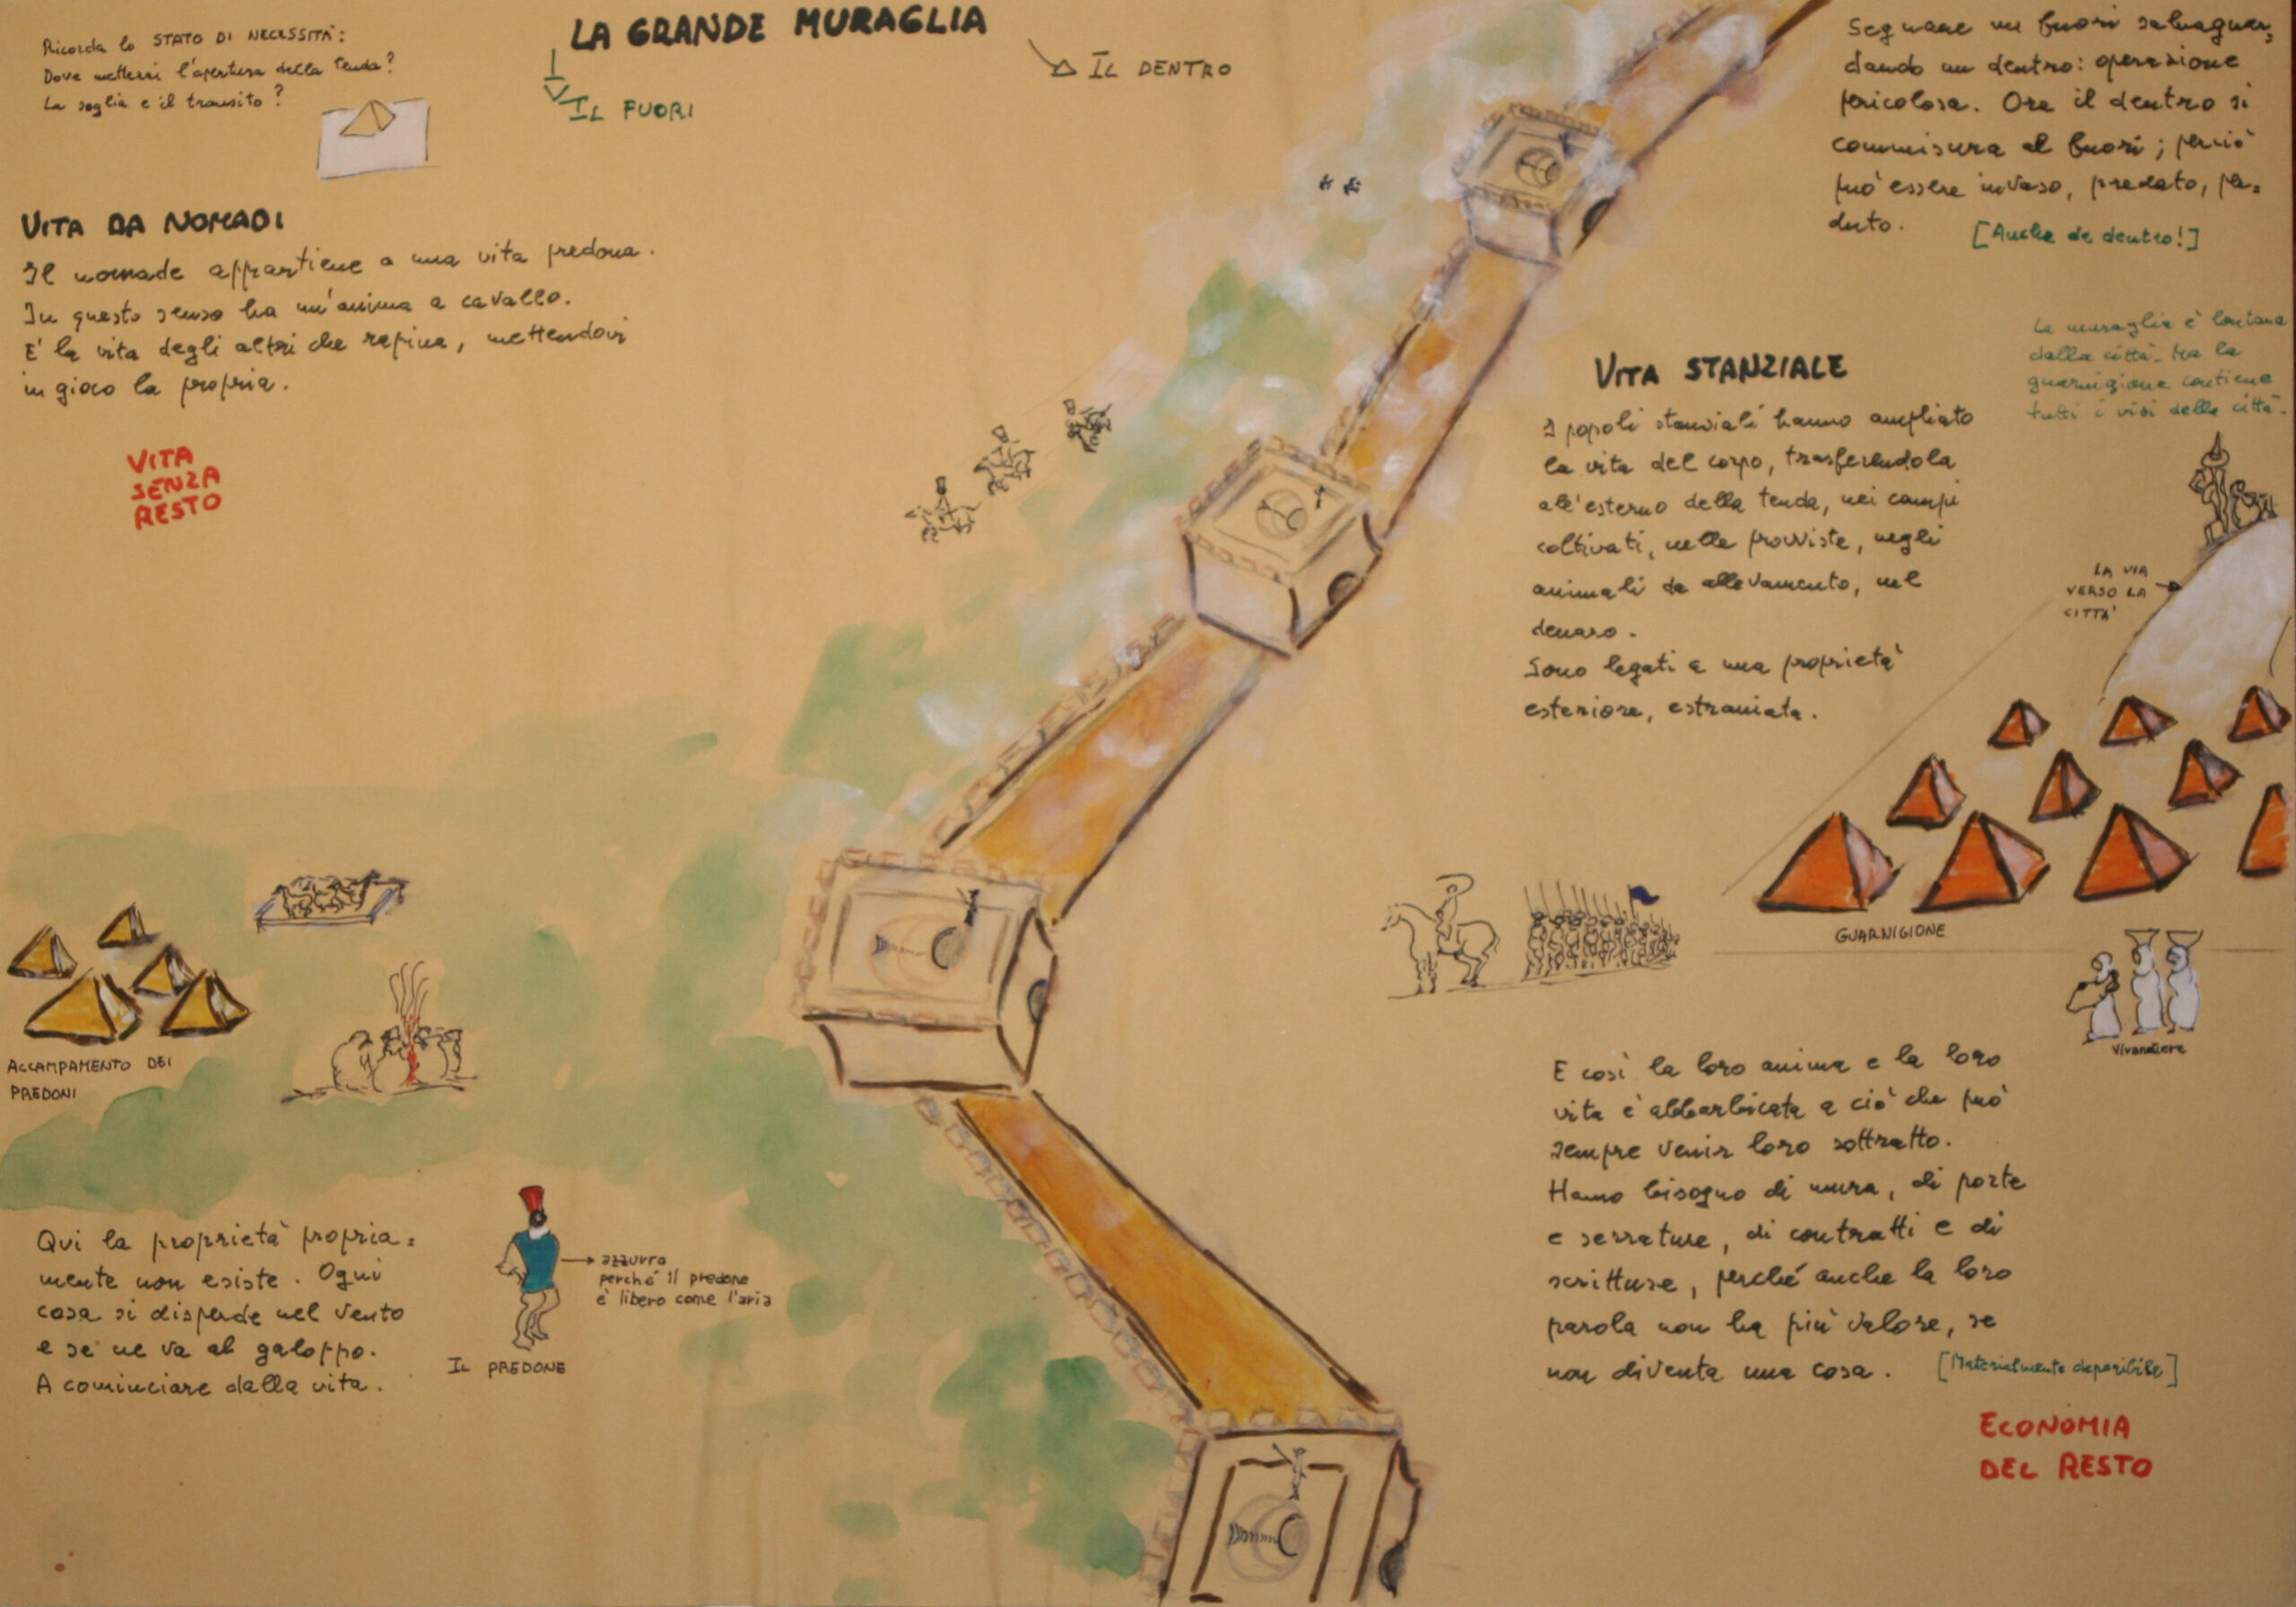 LA GRANDE MURAGLIA
IL FUORI
IL DENTRO
Ricorda lo STATO DI NECESSITÀ:
Dove mettersi l'apertura della tenda?
La soglia e il transito?
VITA DA NOMADI
Il nomade appartiene a una vita predona.
In questo senso ha un'anima a cavallo.
E' la vita degli altri che rapina, mettendovi
in gioco la propria.
VITA
SENZA
RESTO
ACCAMPAMENTO DEI
PREDONI
Qui la proprietà propria=
mente non esiste. Ogni
cosa si disperde nel vento
e se ne va al galoppo.
A cominciare dalla vita.
IL PREDONE
azzurro
perché il predone
è libero come l'aria
Segnare un fuori salvaguar=
dando un dentro: operazione
pericolosa. Ora il dentro si
commisura al fuori; perciò
può essere invaso, predato, per=
duto.
[Anche da dentro!]
La muraglia è lontana
dalla città. Ma la
guarnigione contiene
tutti i vizi della città.
VITA STANZIALE
I popoli stanziali hanno ampliato
la vita del corpo, trasferendola
all'esterno della tenda, nei campi
coltivati, nelle provviste, negli
animali da allevamento, nel
denaro.
Sono legati a una proprietà
esteriore, estraniata.
LA VIA
VERSO LA
CITTA'
GUARNIGIONE
Vivandiere
E così la loro anima e la loro
vita è abbarbicata a ciò che può
sempre venir loro sottratto.
Hanno bisogno di mura, di porte
e serrature, di contratti e di
scritture, perché anche la loro
parola non ha più valore, se
non diventa una cosa.
[Materialmente deperibile]
ECONOMIA
DEL RESTO